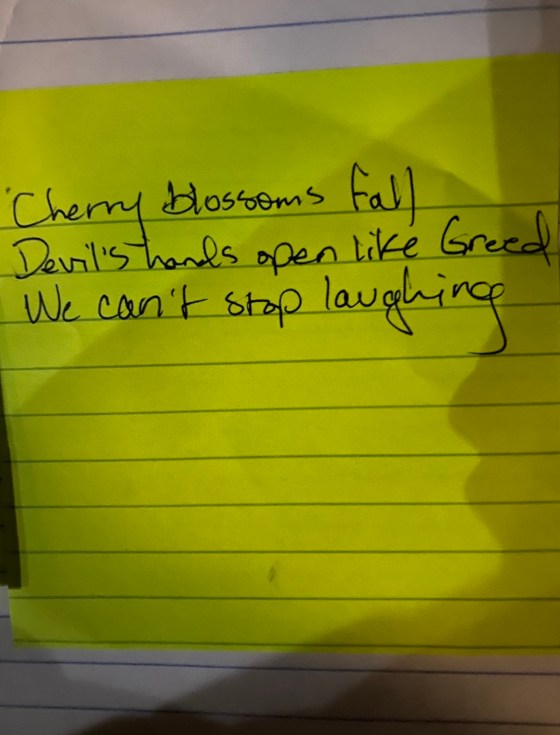 Cherry blossoms fall
Devil's hands open like Greed
We can't stop laughing